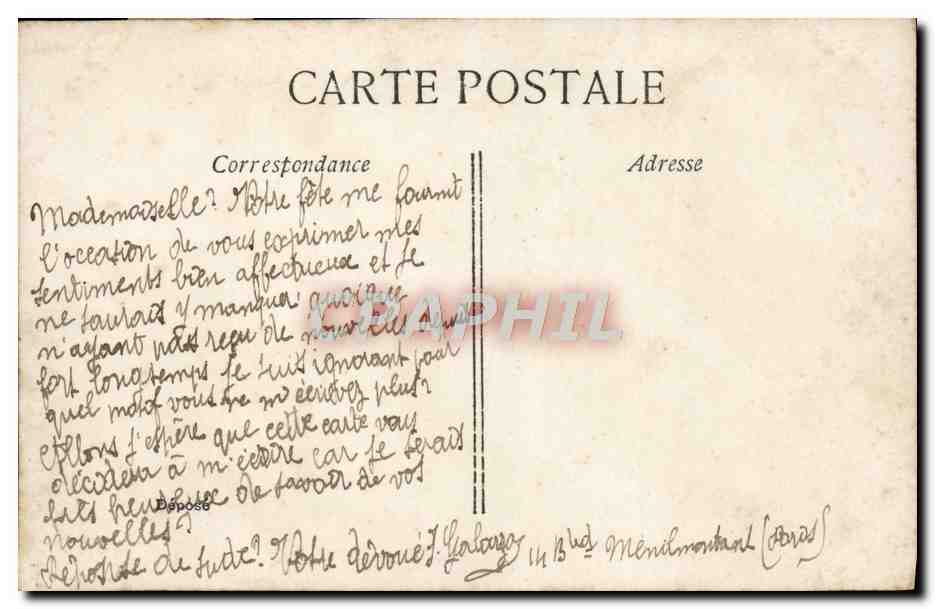 CARTE POSTALE
Correspondance
Adresse
Mademoiselle? Votre fête me fournit
l'occasion de vous exprimer mes
sentiments bien affectueux et je
ne saurais y manquer quoique
n'ayant pas reçu de nouvelles depuis
fort longtemps je suis ignorant pour
quel motif vous ne m'écrivez plus?
Allons j'espère que cette carte vous
décidera à m'écrire car je serais
très heureux de savoir de vos
Déposé
nouvelles?
Réponse de suite? Votre dévoué J. 14 Bvd Ménilmontant (Paris)
CPAPHIL